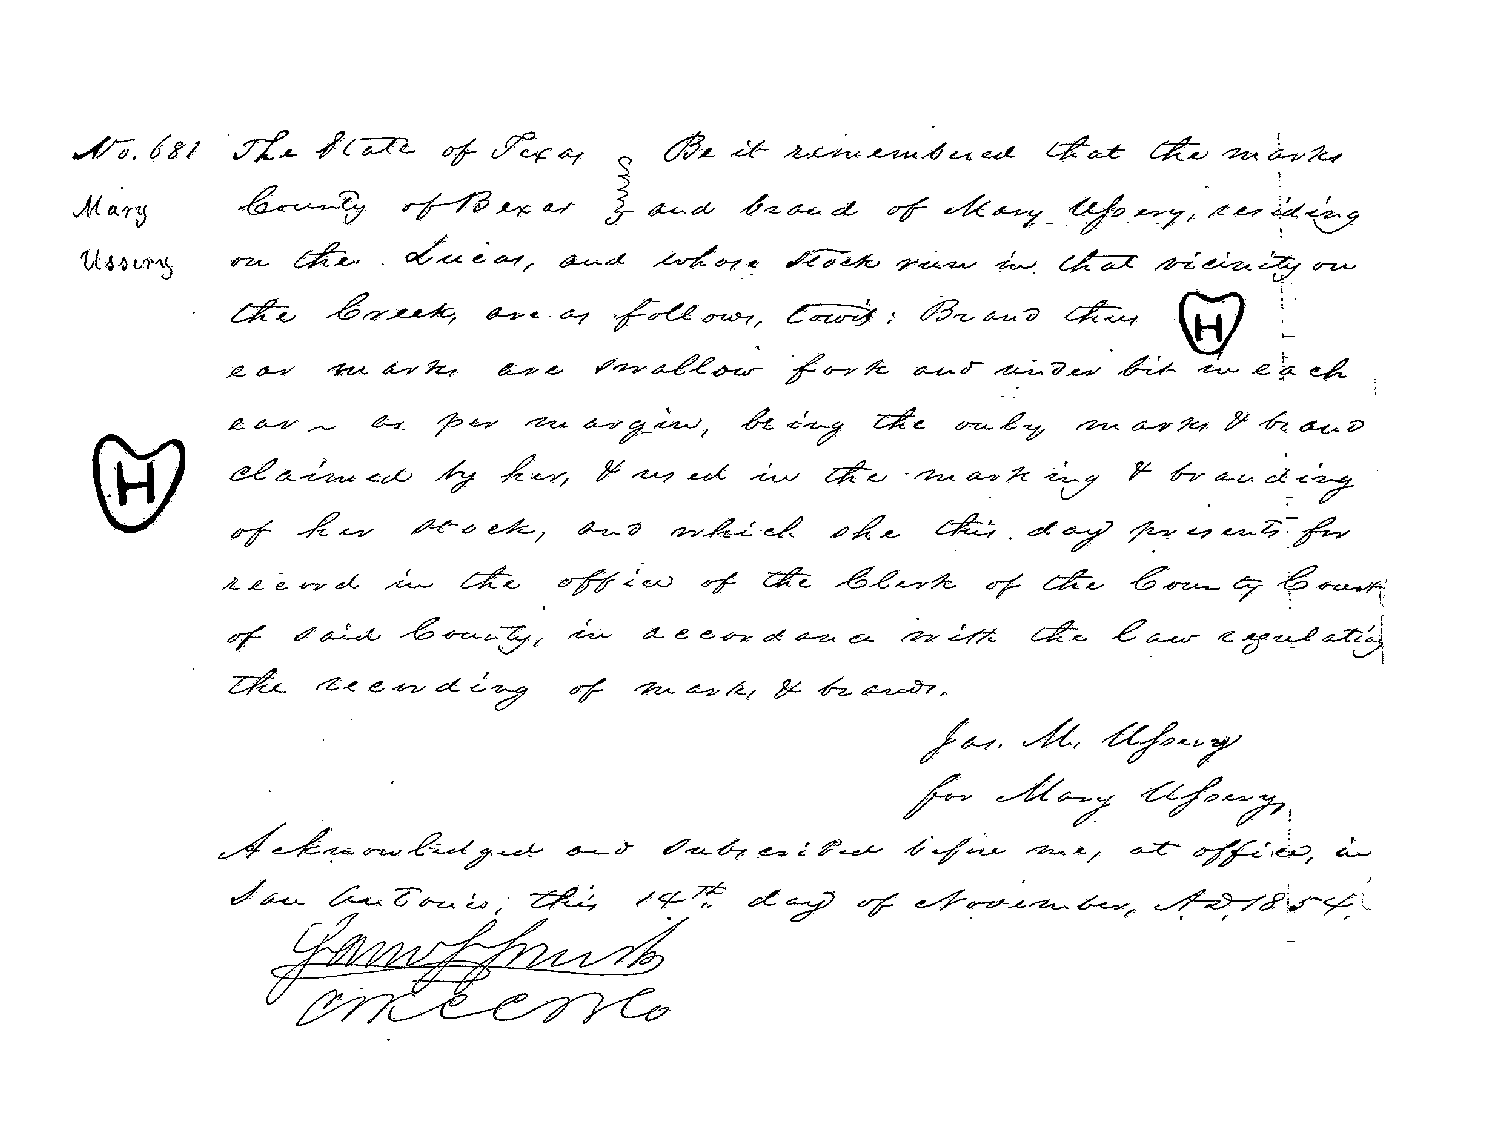 No. 681 The State of Texas Be it remembered that the marks
Mary County of Bexar and brand of Mary Ussery, residing
Ussery on the Lucas, and whose stock run in that vicinity on
the Creek, are as follows, towit: Brand thus H
ear marks are swallow fork and under bit in each
ear ~ as per margin, being the only marks & brand
H claimed by her, & used in the marking & branding
of her stock, and which she this day presents for
record in the office of the Clerk of the County Court
of said County, in accordance with the law regulating
the recording of marks & brands.
Jas. M. Ussery
for Mary Ussery,
Acknowledged and subscribed before me, at office, in
San Antonio, this 14th day of November, A.D. 1854.